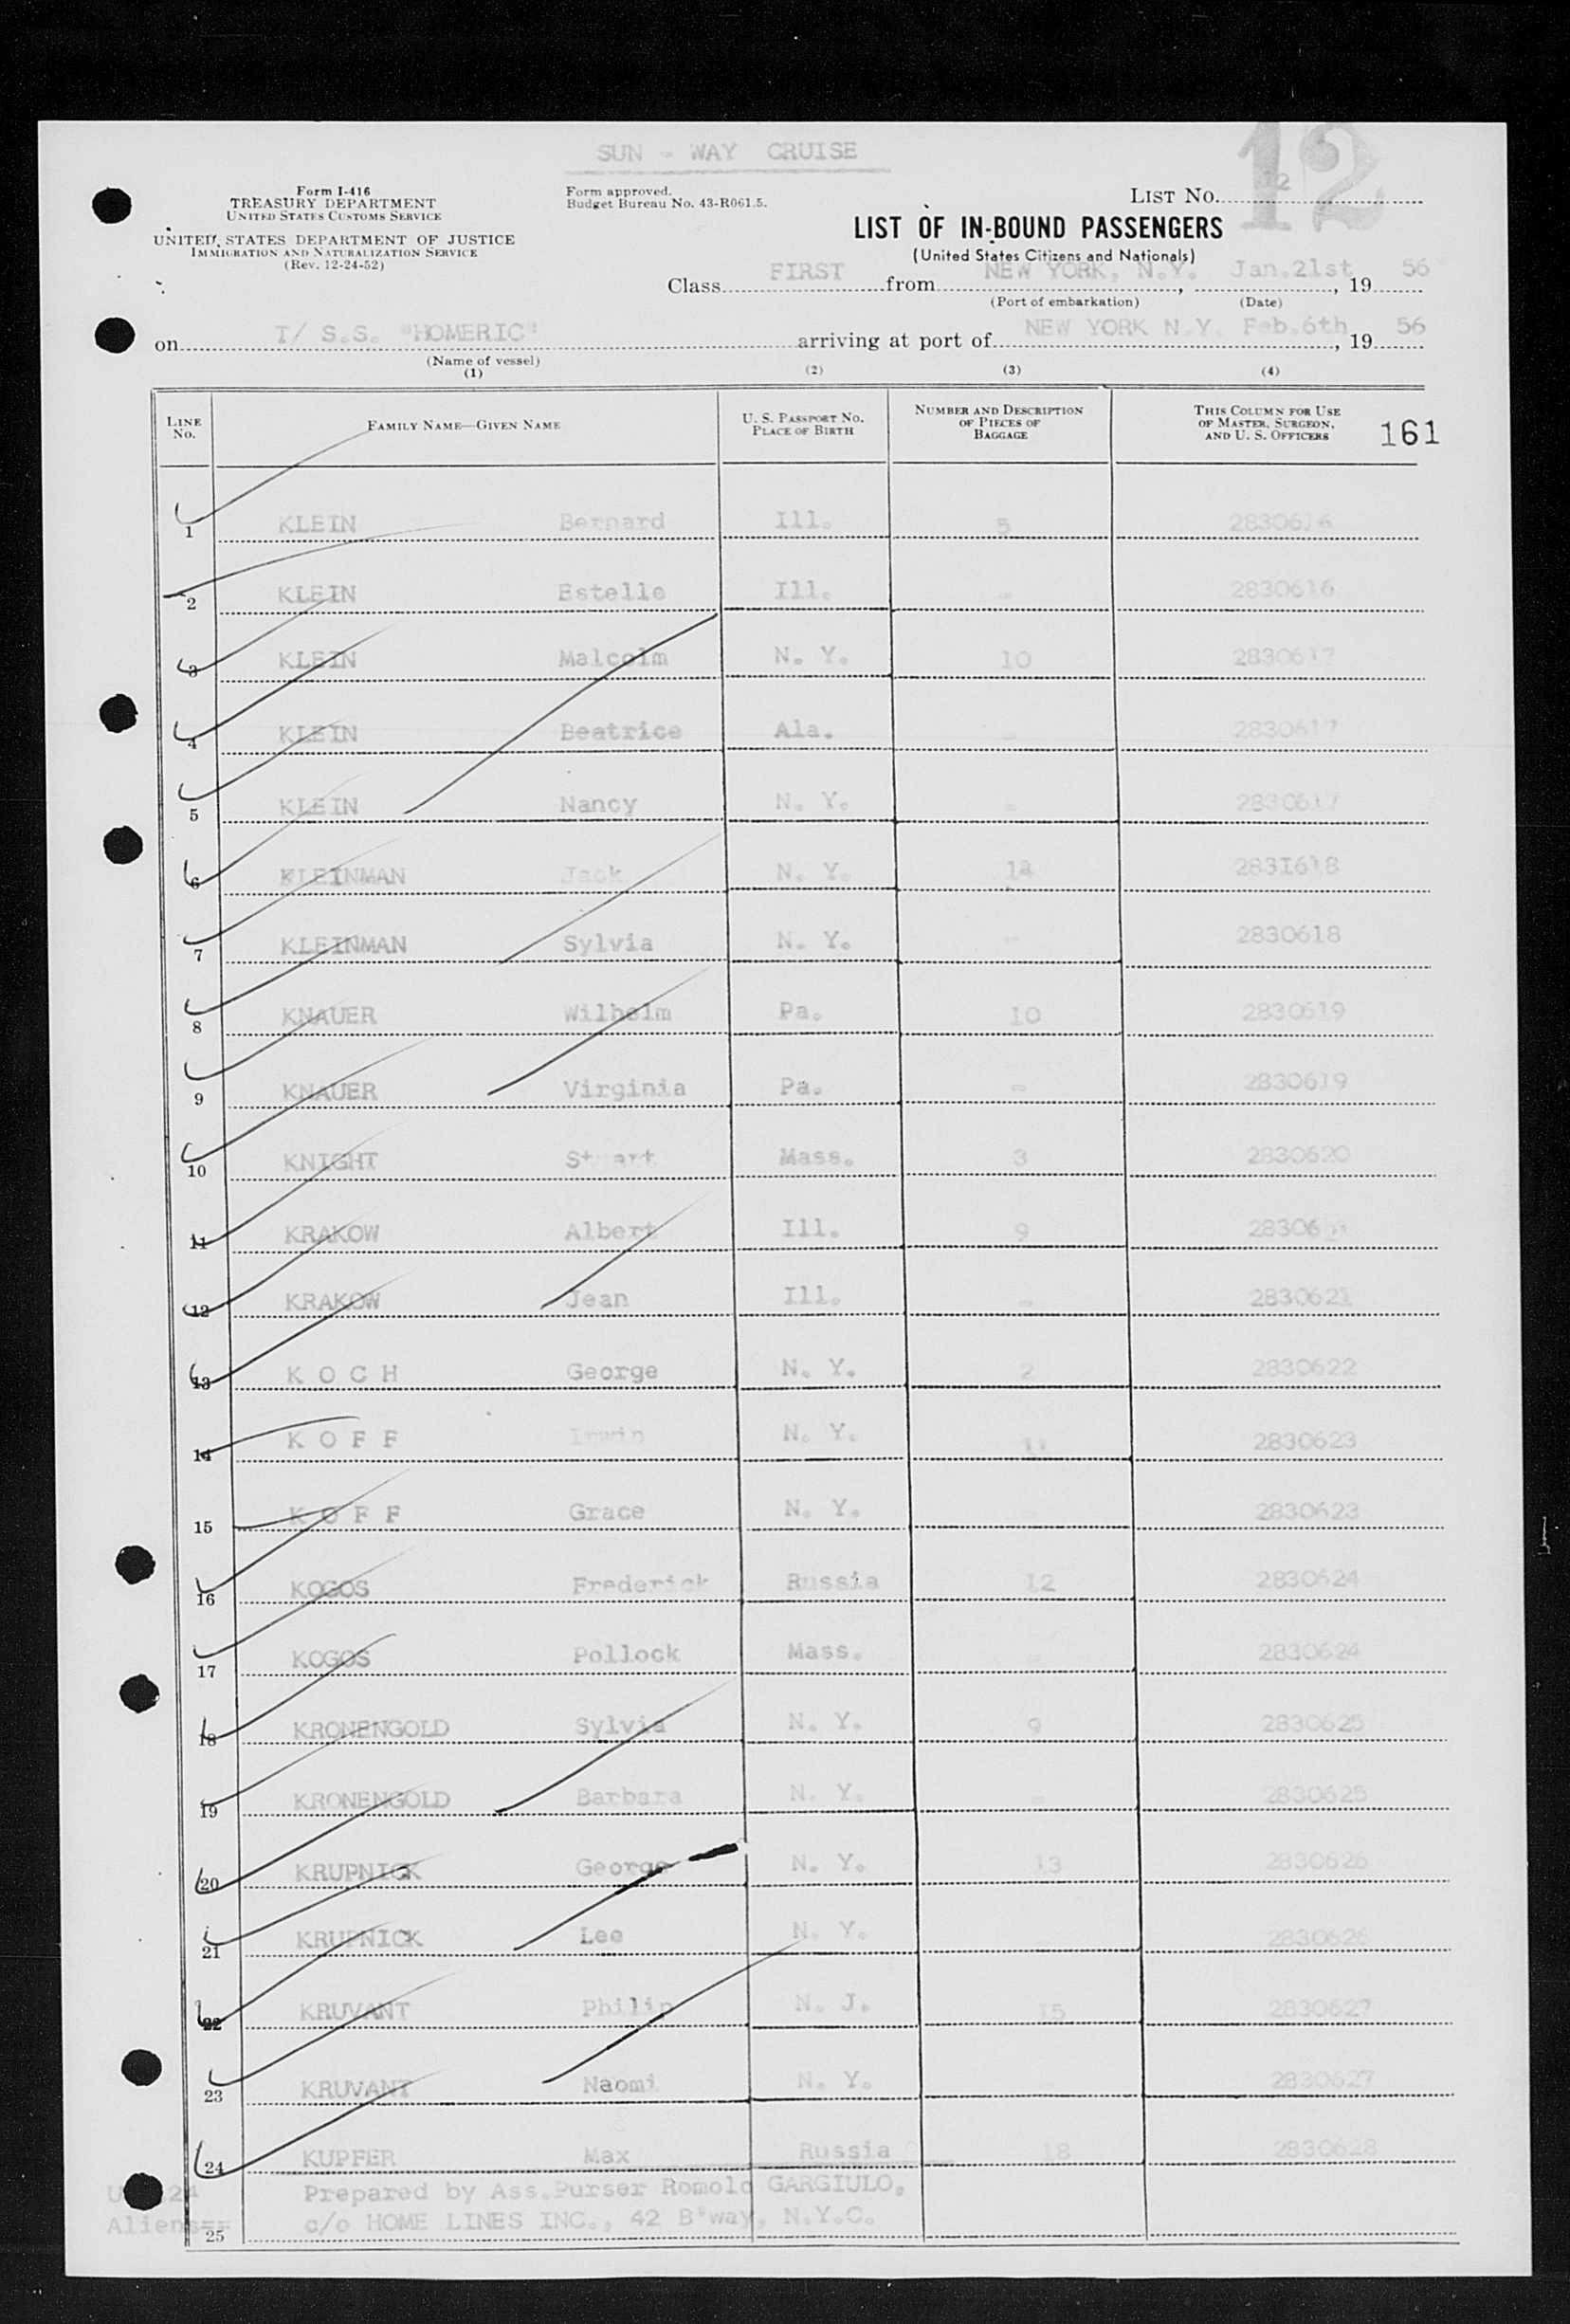 SUN - WAY CRUISE
12
Form I-416
TREASURY DEPARTMENT
UNITED STATES CUSTOMS SERVICE
Form approved.
Budget Bureau No. 43-R061.5.
LIST NO. 12
UNITED STATES DEPARTMENT OF JUSTICE
IMMIGRATION AND NATURALIZATION SERVICE
(Rev. 12-24-52)
LIST OF IN-BOUND PASSENGERS
(United States Citizens and Nationals)
Class FIRST from NEW YORK, N.Y. , Jan.21st , 19 56
(Port of embarkation) (Date)
on T/ S.S. "HOMERIC" arriving at port of NEW YORK N.Y. Feb.6th , 19 56
(Name of vessel)
(1) (2) (3) (4)
LINE No. FAMILY NAME—GIVEN NAME U. S. PASSPORT NO. PLACE OF BIRTH NUMBER AND DESCRIPTION OF PIECES OF BAGGAGE THIS COLUMN FOR USE OF MASTER, SURGEON, AND U. S. OFFICERS 161
1 KLEIN Bernard Ill. 5 2830616
2 KLEIN Estelle Ill. - 2830616
3 KLEIN Malcolm N. Y. 10 2830617
4 KLEIN Beatrice Ala. - 2830617
5 KLEIN Nancy N. Y. - 2830617
6 KLEINMAN Jack N. Y. 2831618
7 KLEINMAN Sylvia N. Y. - 2830618
8 KNAUER Wilhelm Pa. 10 2830619
9 KNAUER Virginia Pa. - 2830619
10 KNIGHT Mass. 3 2830620
11 KRAKOW Albert Ill. 9
12 KRAKOW Jean Ill. - 2830621
13 K O C H George N. Y. 2 2830622
14 K O F F Irwin N. Y. 2830623
15 K O F F Grace N. Y. 2830623
16 KOGOS Frederick Russia 12 2830624
17 KOGOS Pollock Mass. - 2830624
18 KRONENGOLD Sylvia N. Y. 9 2830625
19 KRONENGOLD Barbara N. Y. - 2830625
20 KRUPNICK George N. Y. 13 2830626
21 KRUPNICK Lee N. Y. 2830626
22 KRUVANT Philip N. J. 15 2830627
23 KRUVANT Naomi N. Y. 2830627
24 KUPFER Max Russia 18 2830628
24 Prepared by Ass.Purser Romolo GARGIULO,
Aliens== c/o HOME LINES INC., 42 B'way, N.Y.C.
25